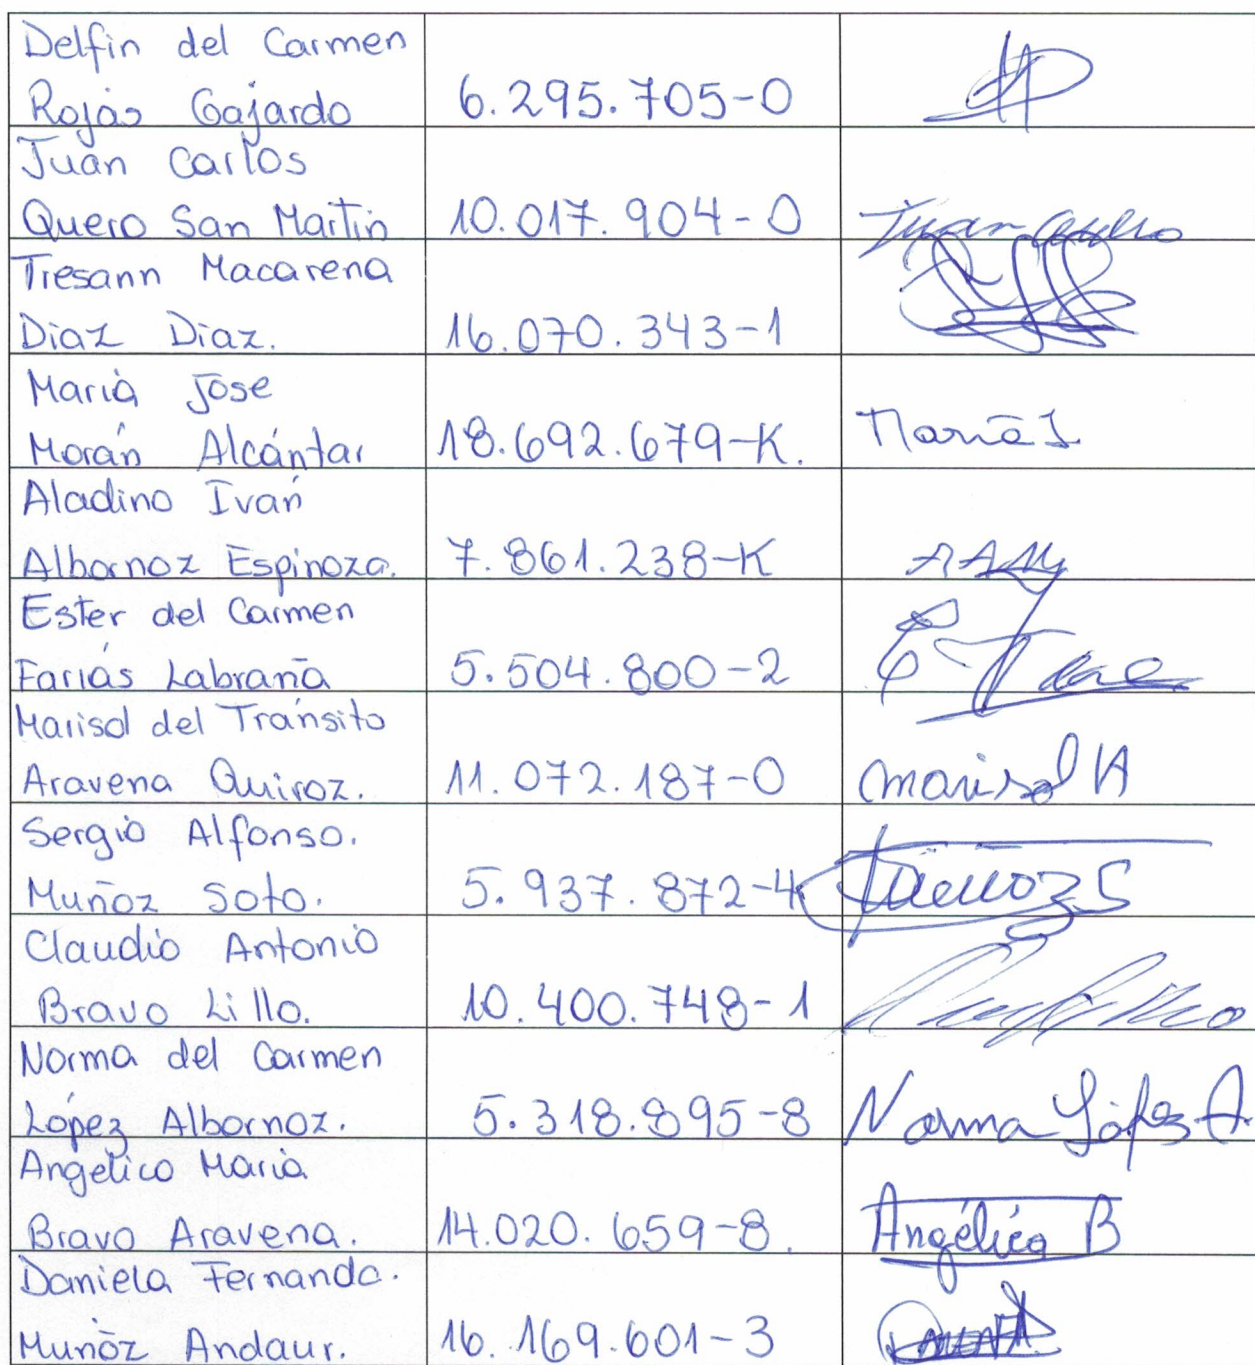 Delfin del Carmen
Rojas Gajardo 6.295.705-0
Juan Carlos
Quero San Martin 10.017.904-0
Tresann Macarena
Diaz Diaz. 16.070.343-1
Maria Jose
Morán Alcántar 18.692.679-K. Maria J
Aladino Iván
Albornoz Espinoza. 7.861.238-K
Ester del Carmen
Farias Labraña 5.504.800-2
Marisol del Tránsito
Aravena Quiroz. 11.072.187-0 Marisol A
Sergio Alfonso.
Muñoz Soto. 5.937.872-4 Muñoz S
Claudio Antonio
Bravo Lillo. 10.400.748-1
Norma del Carmen
López Albornoz. 5.318.895-8 Norma López A.
Angelico Maria
Bravo Aravena. 14.020.659-8. Angélica B
Daniela Fernanda.
Muñoz Andaur. 16.169.601-3